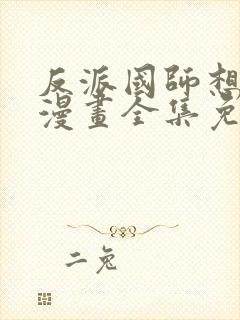 反派國師想
漫畫全集免
二兔